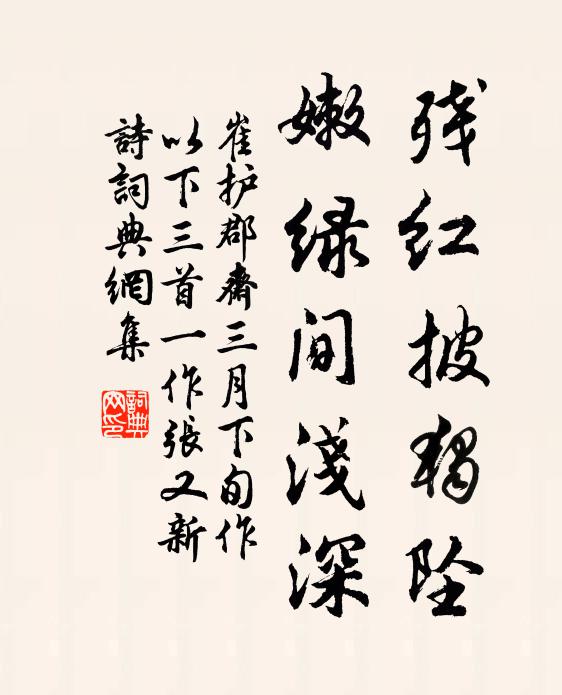 残红披独坠
嫩绿间淺深
崔护郡齋三月下旬作
以下三首一作張又新
詩詞典網集
詞典网印